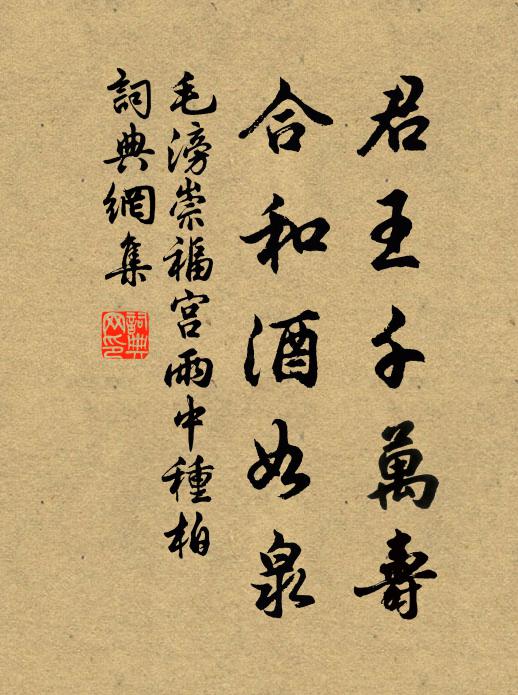 君王千萬壽
合和酒如泉
毛滂崇福宮雨中種柏
詞典網集
詞典網印